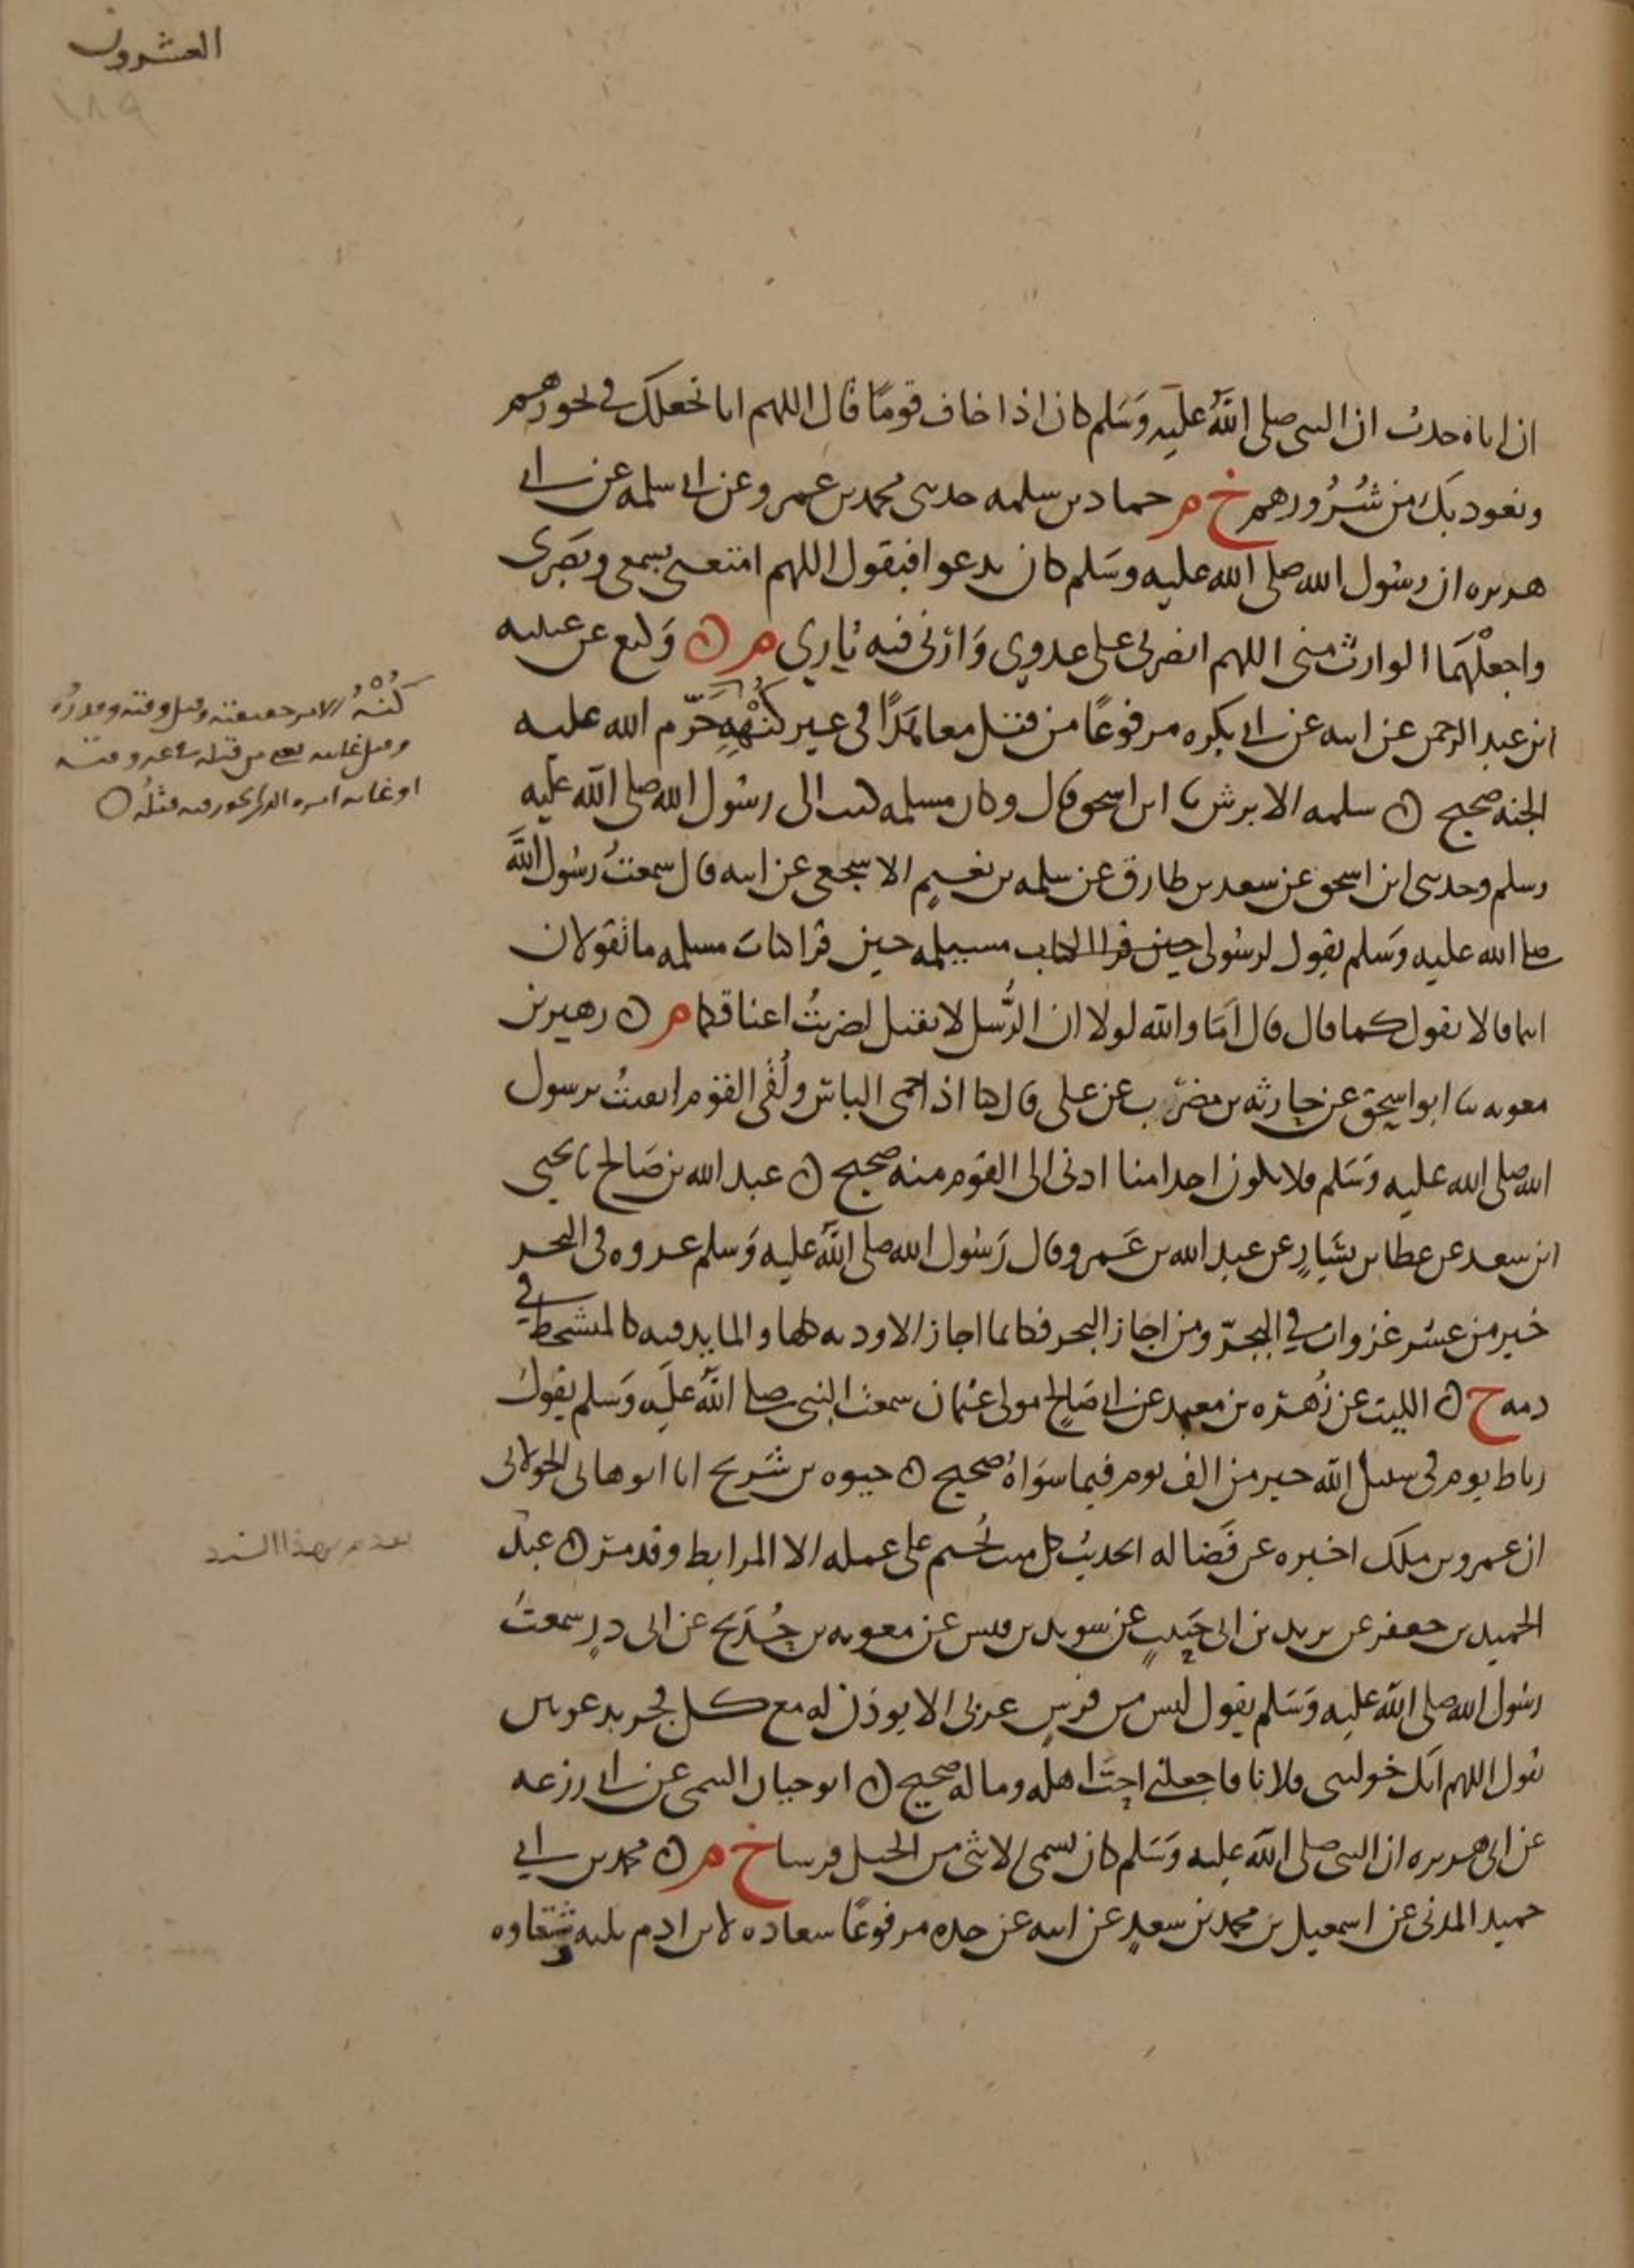 العشرون
١٨٩
ان اباه حدث ان النبي صلى اللَّهُ عليه وَسَلم كان اذا خاف قومًا قال اللهم انا نجعلك في نحورهم
ونعوذ بك من شُرُورهم خ م حماد بن سلمه حدثني محمد بن عمرو عن ابي سلمه عن ابي
هريره ان رسُول الله صلى الله عليه وسَلم كان يدعوا فيقول اللهم امتعني بسمعي وبَصَري
واجعلْهُمَا الوارث مني اللهم انصرني على عدوي وَارني فيه ثاري م ن وَكيع عن عيينه
ابن عبد الرحمن عن ابيه عن ابي بكره مرفوعًا من قتل معاهَدًا في غير كُنْهِهِ حَرَّم الله عليه
كُنْهُ الامر حقيقته وقيل وقته وقدرُه
وقيل غايته يعني من قتله في غير وقته
او غاية امره الذي يجوز فيه قتلُه ○
الجنه صحيح ن سلمه الابرش نا ابن اسحق قال وكان مسيلمه كتب الى رسُول الله صلى الله عليه
وسلم وحدثني ابن اسحق عن سعد بن طارق عن سلمه بن نعيمٍ الاشجعي عن ابيه قال سمعتُ رسُول اللَّه
صلى الله عليه وَسَلم يقول لرسُولي حين قرا الكتاب مسيلمه حين قرا كتاب مسيلمه ما تقولان
انتما قالا نقول كما قال قال اَمَا والله لولا ان الرُّسل لا تقتل لضربتُ اعناقكما م ن زهير بن
معويه نا ابو اسحق عن حارثه بن مضرّب عن علي قال كنا اذا حمي الباس ولُقي القوم القومَ اتقينا برسول
الله صلى الله عليه وَسَلم فلا يكون احدا منا ادنى الى القوم منه صحيح ن عبد الله بن صَالح نا يحيى
ابن سعيد عن عطا بن يَسَارٍ عن عبد الله بن عَمرو قال رَسُول الله صلى اللَّه عليه وَسلم غزوه في البحر
خير من عشر غزوات في البرّ ومن اجاز البحر فكانما اجاز الاوديه كلها والمايد فيه كالمتشحط في
دمه خ ن الليث عن زُهْره بن معبد عن ابي صَالح مولى عثمان سمعت النبي صلى اللَّه عليه وَسلم يقول
رباط يوم في سبيل الله خير من الف يوم فيما سوَاهُ صحيح ن حيوه بن شريح انا ابو هاني الخولاني
ان عمرو بن ملك اخبره عن فَضَاله الحديث كل ميت يُختم على عمله الا المرابط وقد مرّ ن عبد
تقدم بهذا السند
الحميد بن جعفر عن يزيد بن ابي حَبيبٍ عن سويد بن قيس عن معويه بن حُدَيج عن ابي ذرٍ سمعتُ
رسُول الله صلى الله عليه وَسَلم يقول ليس من فرسٍ عربي الا يوذن له مع كل فجر بدعوتين
يقول اللهم انك خولتني فلانا فاجعلني احبّ اهله وماله صحيح ن ابو حيان التيمي عن ابي زرعه
عن ابي هريره ان النبي صلى الله عليه وَسَلم كان يسمي الانثى من الخيل فرسا خ م ن محمد بن ابي
حميد المدني عن اسمعيل بن محمد بن سعدٍ عن ابيه عن جده مرفوعًا سعاده لابن ادم ثلثه وشقاوه